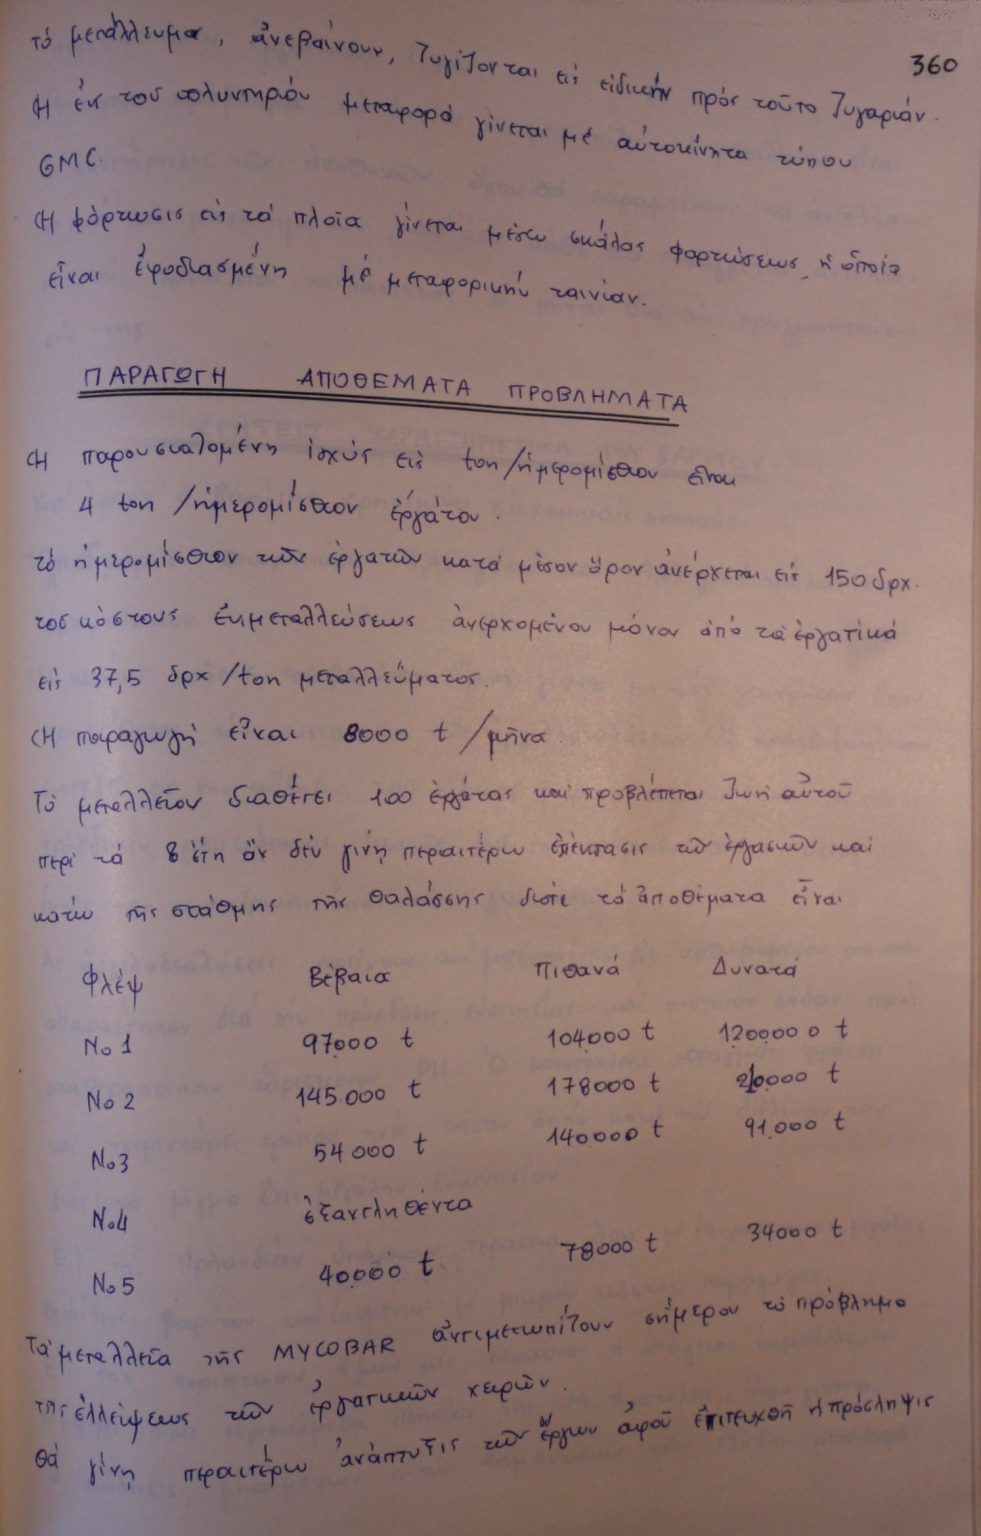 360
τό μετάλλευμα, ἀνεβαίνουν, ζυγίζονται εἰς εἰδικήν πρός τοῦτο ζυγαριάν.
Ἡ ἐκ τοῦ πλυντηρίου μεταφορά γίνεται μέ αὐτοκίνητα τύπου
GMC.
Ἡ φόρτωσις εἰς τά πλοῖα γίνεται μέσω σκάλας φορτώσεως, ἡ ὁποία
εἶναι ἐφοδιασμένη μέ μεταφορικήν ταινίαν.
ΠΑΡΑΓΩΓΗ ΑΠΟΘΕΜΑΤΑ ΠΡΟΒΛΗΜΑΤΑ
Ἡ παρουσιαζομένη ἰσχύς εἰς ton/ἡμερομίσθιον εἶναι
4 ton /ἡμερομίσθιον ἐργάτου.
τό ἡμερομίσθιον τῶν ἐργατῶν κατά μέσον ὅρον ἀνέρχεται εἰς 150 δρχ.
τοῦ κόστους ἐκμεταλλεύσεως ἀνερχομένου μόνον ἀπό τά ἐργατικά
εἰς 37,5 δρχ /ton μεταλλεύματος.
Ἡ παραγωγή εἶναι 8000 t/μῆνα.
Τό μεταλλεῖον διαθέτει 100 ἐργάτας καί προβλέπεται ζωή αὐτοῦ
περί τά 8 ἔτη ἄν δέν γίνῃ περαιτέρω ἐπέκτασις τῶν ἐργασιῶν καί
κάτω τῆς στάθμης τῆς θαλάσσης διότι τά ἀποθέματα εἶναι
Φλέψ Βέβαια Πιθανά Δυνατά
No 1 97.000 t 104.000 t 120.000 t
No 2 145.000 t 178000 t 210000 t
No3 54.000 t 140.000 t 91.000 t
No4 ἐξαντληθέντα
No 5 40.000 t 78000 t 34000 t
Τά μεταλλεῖα τῆς MYCOBAR ἀντιμετωπίζουν σήμερον τό πρόβλημα
τῆς ἐλλείψεως τῶν ἐργατικῶν χειρῶν.
Θά γίνῃ περαιτέρω ἀνάπτυξις τῶν ἔργων ἀφοῦ ἐπιτευχθῇ ἡ πρόσληψις